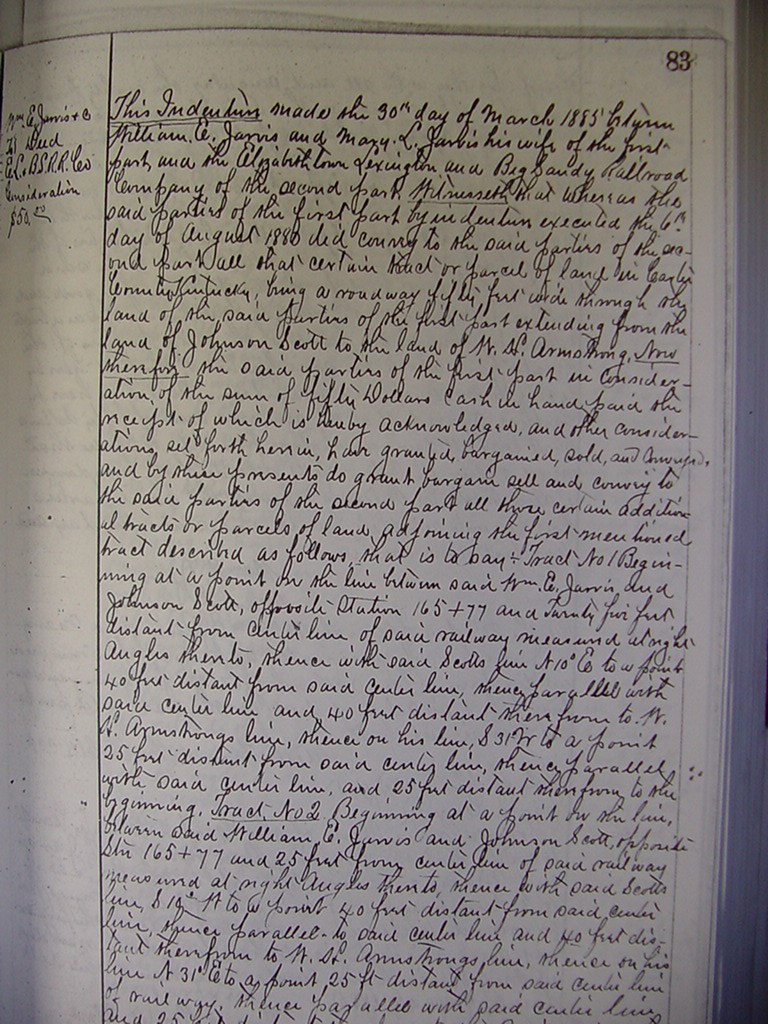 83
Wm E. Jarvis & C
To Deed
E. L. & B.S.R.R. Co
Consideration
$50.00
This Indenture made the 30th day of March 1885 between
William. E. Jarvis and Mary. L. Jarvis his wife of the first
part, and the Elizabethtown Lexington and Big Sandy Railroad
Company of the second part Witnesseth that whereas the
said parties of the first part by indenture executed the 6th
day of August 1880 did convey to the said parties of the sec-
ond part all that certain tract or parcel of land in Carter
County Kentucky, being a roadway fifty feet wide through the
land of the said parties of the first part extending from the
land of Johnson Scott to the land of W. H. Armstrong, Now
therefore the said parties of the first part in consider-
ation, of the sum of fifty Dollars cash in hand paid the
receipt of which is hereby acknowledged, and other consider-
ations, set forth herein, have granted, bargained, sold, and conveyed,
and by these presents do grant, bargain sell and convey to
the said parties of the second part all those certain addition-
al tracts or parcels of land, adjoining the first mentioned
tract described as follows, that is to say:- Tract No 1 Begin-
ning at a point on the line between said Wm. E. Jarvis, and
Johnson Scott, opposite Station 165+77 and twenty five feet
distant from center line of said railway measured at right
Angles thereto, thence with said Scotts line N 10° E to a point
40 feet distant from said center line, thence parallel with
said center line and 40 feet distant therefrom to W.
H. Armstrongs line, thence on his line, S 31 W to a point
25 feet distant from said center line, thence parallel
with said center line, and 25 feet distant therefrom to the
beginning. Tract No 2 Beginning at a point on the line,
between said William E. Jarvis and Johnson Scott, opposite
Stn 165+77 and 25 feet from center line of said railway
measured at right Angles thereto, thence with said Scotts
line, S 10° W to a point 40 feet distant from said center
line, thence parallel to said center line and 40 feet dis-
tant therefrom to W. H. Armstrongs, line, thence on his
line N 31° E to a point 25 ft distant from said center line
of railway. thence parallel with said center line
and 25